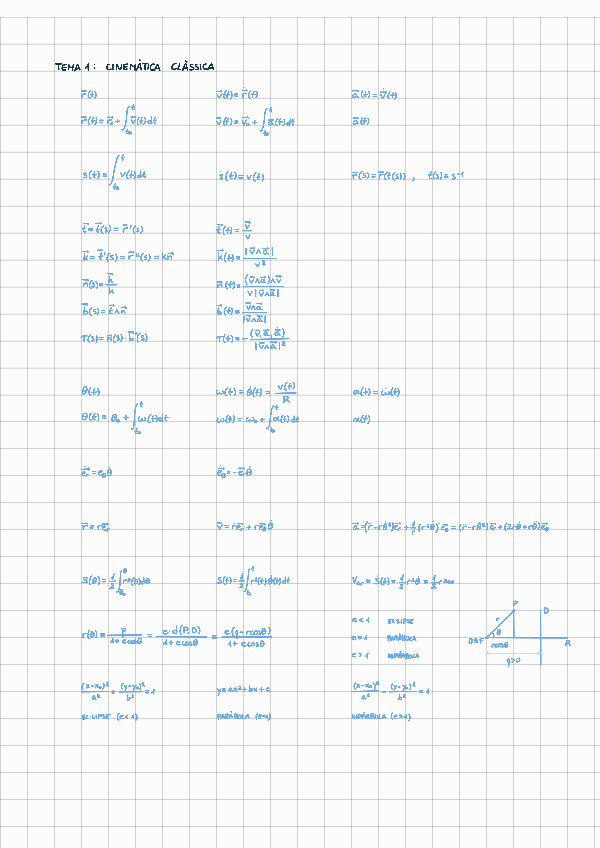 TEMA 1: CINEMÀTICA CLÀSSICA
r⃗(t) v⃗(t) = ṙ⃗(t) a⃗(t) = v̇⃗(t)
r⃗(t) = r⃗₀ + ∫_{t₀}^{t} v⃗(t)dt v⃗(t) = v⃗₀ + ∫_{t₀}^{t} a⃗(t)dt a⃗(t)
s(t) = ∫_{t₀}^{t} v(t)dt ṡ(t) = v(t) r⃗(s) = r⃗(t(s)) , t(s) = s⁻¹
t⃗ = t⃗(s) = r⃗'(s) t⃗(t) = v⃗/v
k⃗ = t⃗'(s) = r⃗''(s) = kn⃗ k⃗(t) = |v⃗∧a⃗|/v³
n⃗(s) = k⃗/k n⃗(t) = (v⃗∧a⃗)∧v⃗ / v|v⃗∧a⃗|
b⃗(s) = t⃗∧n⃗ b⃗(t) = v⃗∧a⃗ / |v⃗∧a⃗|
τ(s) = n⃗(s)·b⃗'(s) τ(t) = -(v⃗,a⃗,ȧ⃗) / |v⃗∧a⃗|²
θ(t) ω(t) = θ̇(t) = v(t)/R α(t) = ω̇(t)
θ(t) = θ₀ + ∫_{t₀}^{t} ω(t)dt ω(t) = ω₀ + ∫_{t₀}^{t} α(t)dt α(t)
ė⃗ᵣ = e⃗_θ θ̇ ė⃗_θ = -e⃗ᵣ θ̇
r⃗ = re⃗ᵣ v⃗ = ṙe⃗ᵣ + re⃗_θ θ̇ a⃗ = (r̈-rθ̇²)e⃗ᵣ + 1/r (r²θ̇)˙e⃗_θ = (r̈-rθ̇²)e⃗ᵣ + (2ṙθ̇+rθ̈)e⃗_θ
S(θ) = 1/2 ∫_{θ₀}^{θ} r²(θ)dθ S(t) = 1/2 ∫_{t₀}^{t} r²(t)θ̇(t)dt Vₐᵣ = Ṡ(t) = 1/2 r²θ̇ = 1/2 r²ω
r(θ) = p/(1+ecosθ) = e·d(P,D)/(1+ecosθ) = e(q-rcosθ)/(1+ecosθ)
e < 1 EL·LIPSE
e = 1 PARÀBOLA
e > 1 HIPÈRBOLA
P D
r
θ
O≡F rcosθ R
q>0
(x-x₀)²/a² + (y-y₀)²/b² = 1 y = ax²+bx+c (x-x₀)²/a² - (y-y₀)²/b² = 1
EL·LIPSE (e<1) PARÀBOLA (e=1) HIPÈRBOLA (e>1)